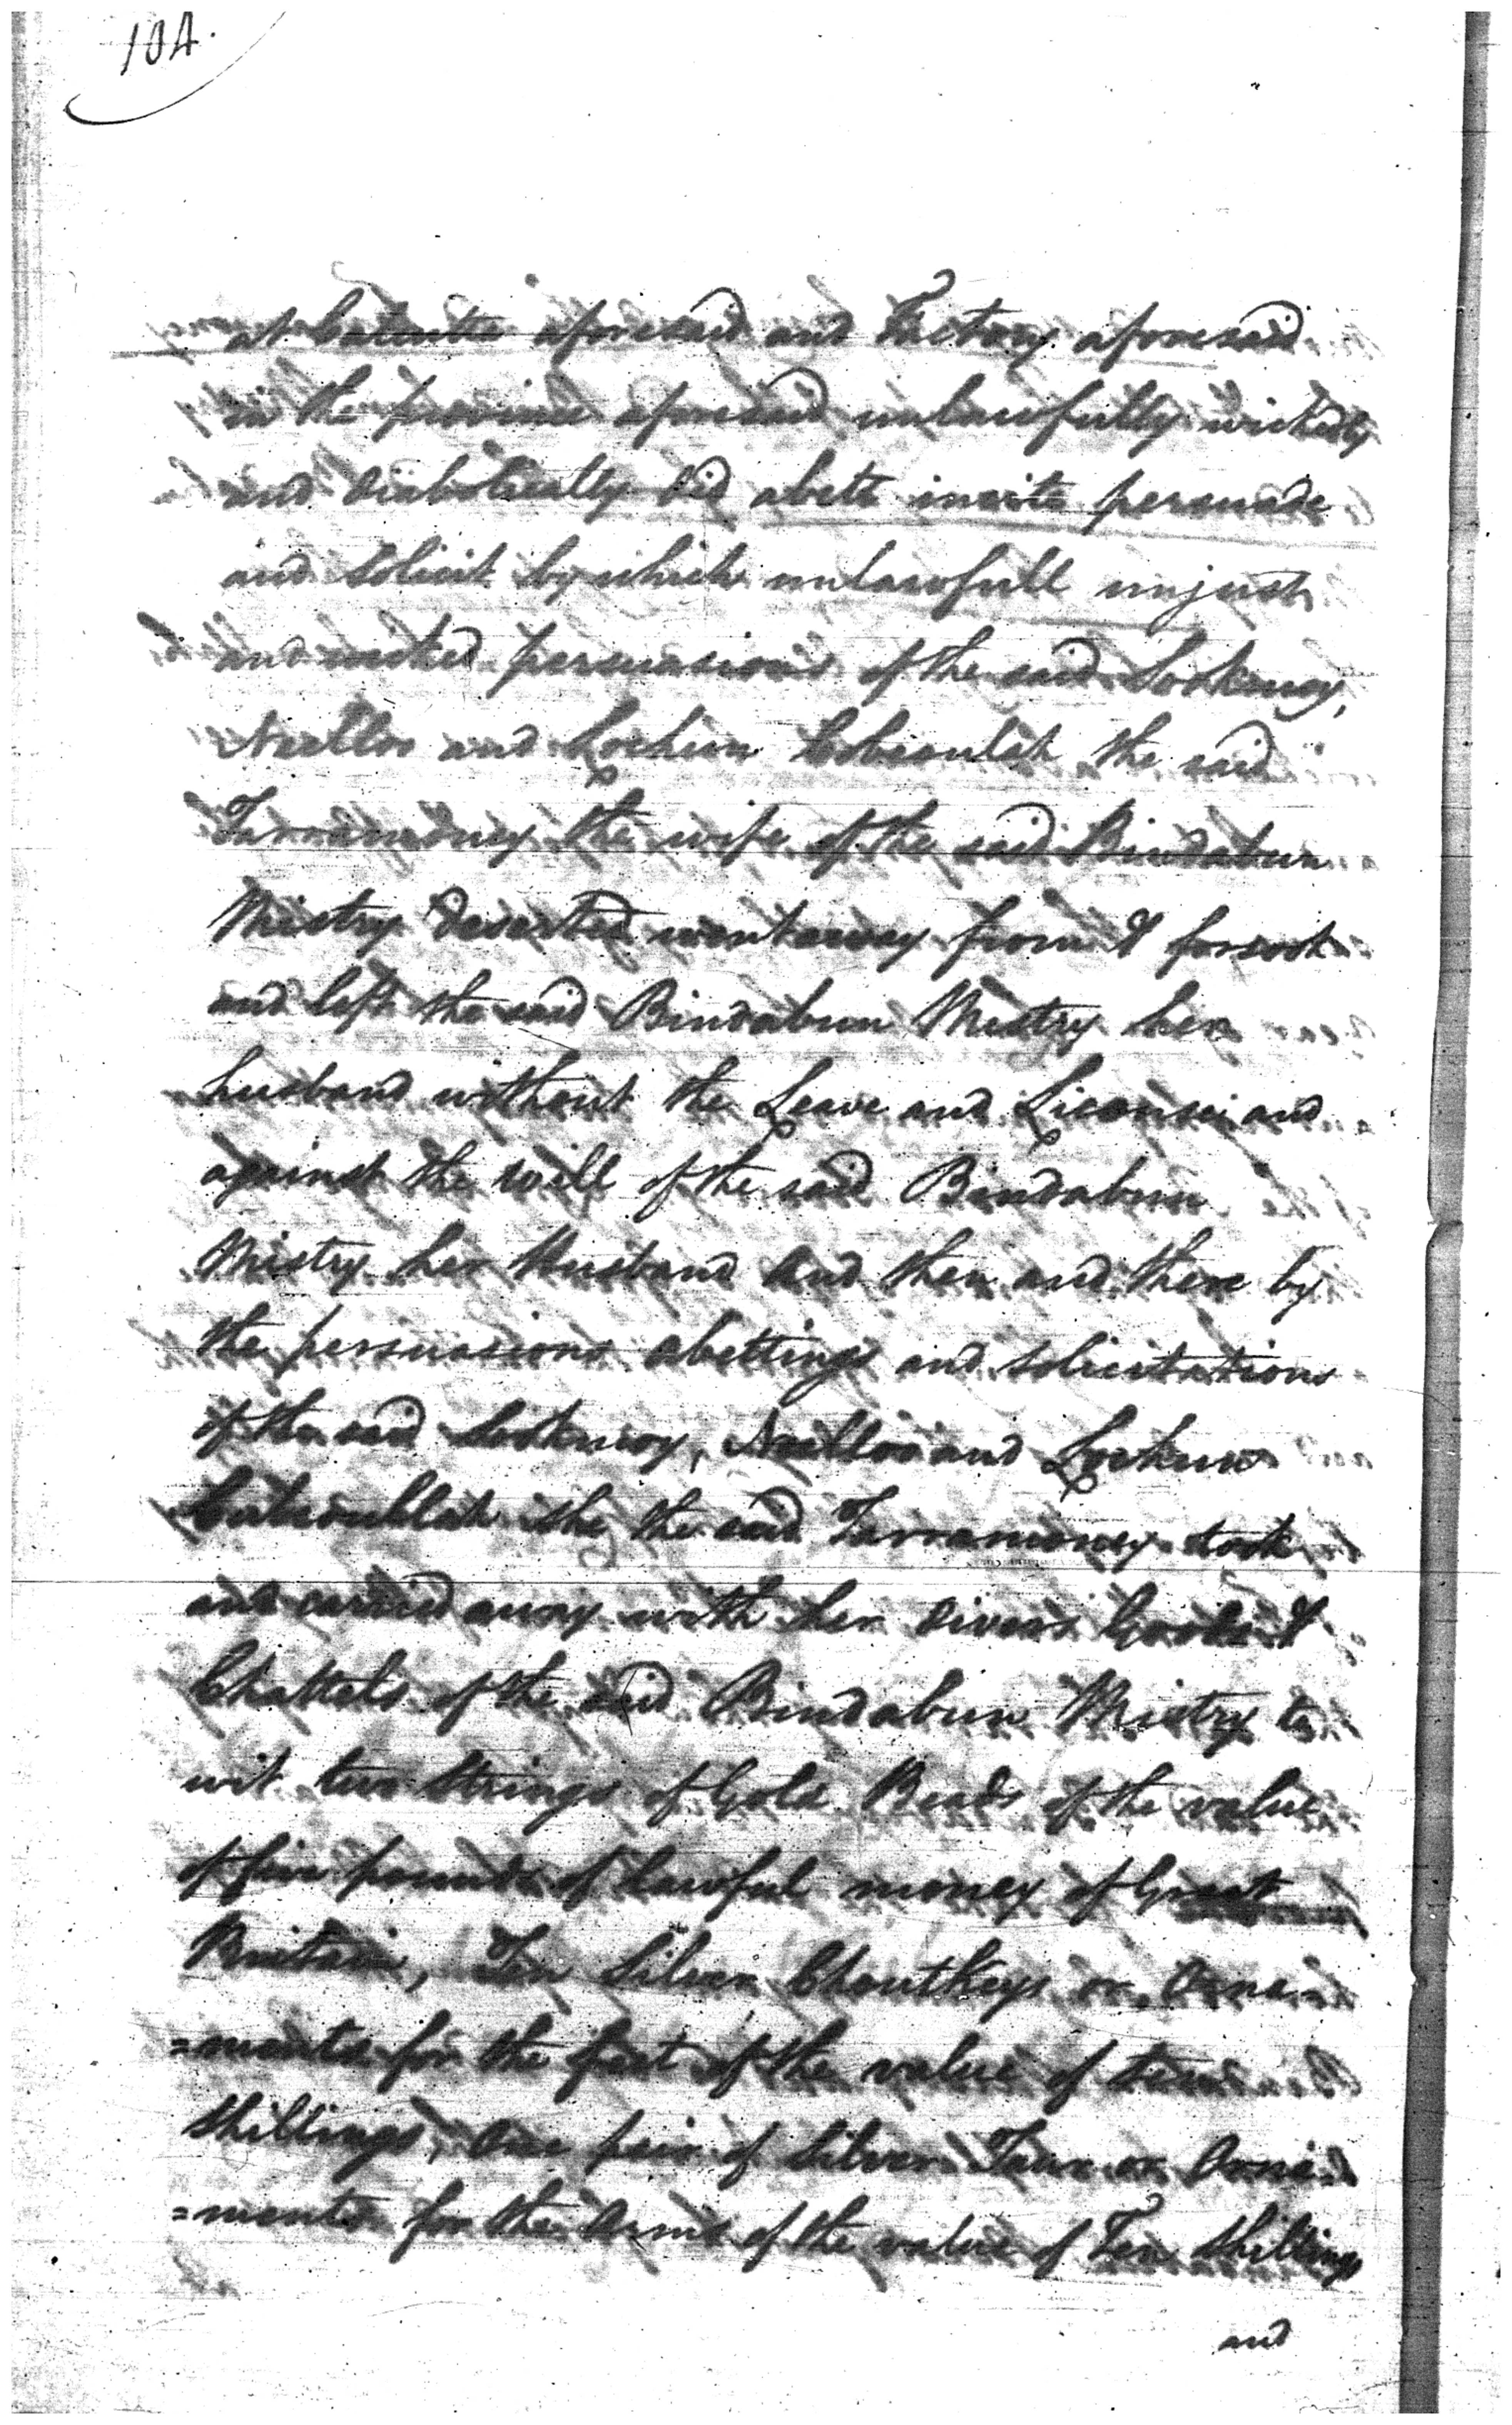 104.
at Calcutta aforesaid and Factory aforesaid
in the province aforesaid unlawfully wickedly
and diabolically did abett incite persuade
and Solicit by which unlawfull unjust
and wicked persuasions of the said Lookenoy,
and Lochun the said
Tarramoney the wife of the said Bindabun
Mistry deserted went away from & forsook
and left the said Bindabun Mistry her
husband without the Leave and License and
against the will of the said Bindabun
Mistry her Husband And then and there by
the persuasions abettings and solicitations
of the said and Lochun
she the said Tarramoney took
and carried away with her divers Goods &
Chattels of the said Bindabun Mistry to
wit two Strings of Gold Beads of the value
of five pounds of lawful money of Great
Britain, Ten Silver Choutkeys or Orna=
=ments for the feet of the value of
Shillings, One pair of Silver or Orna=
=ments for the Arms of the value of Ten Shillings
and